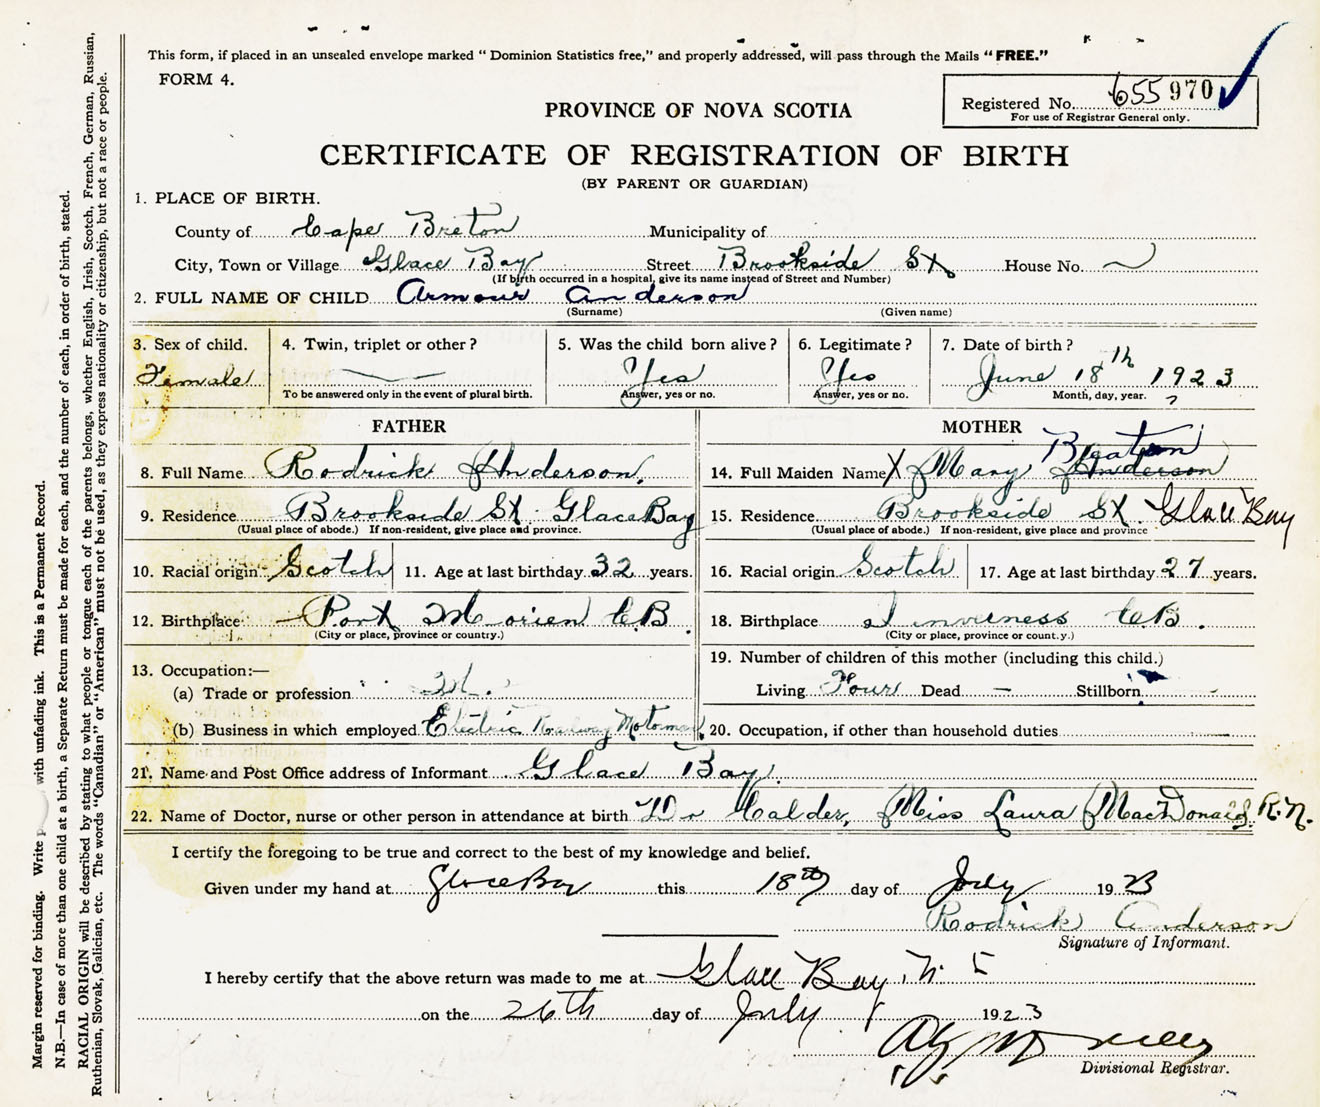 This form, if placed in an unsealed envelope marked “ Dominion Statistics free,” and properly addressed, will pass through the Mails “FREE.”
FORM 4.
Registered No. 655970
For use of Registrar General only.
PROVINCE OF NOVA SCOTIA
CERTIFICATE OF REGISTRATION OF BIRTH
(BY PARENT OR GUARDIAN)
1. PLACE OF BIRTH.
County of Cape Breton Municipality of
City, Town or Village Glace Bay Street Brookside St. House No.
(If birth occurred in a hospital, give its name instead of Street and Number)
2. FULL NAME OF CHILD Armour Anderson
(Surname) (Given name)
3. Sex of child. 4. Twin, triplet or other? 5. Was the child born alive? 6. Legitimate? 7. Date of birth?
Female Yes Yes June 18th 1923
To be answered only in the event of plural birth. Answer, yes or no. Answer, yes or no. Month, day, year.
FATHER MOTHER
Beaton
8. Full Name Rodrick Anderson. 14. Full Maiden Name X Mary Anderson
9. Residence Brookside St. Glace Bay 15. Residence Brookside St. Glace Bay
(Usual place of abode.) If non-resident, give place and province. (Usual place of abode.) If non-resident, give place and province
10. Racial origin Scotch 11. Age at last birthday 32 years. 16. Racial origin Scotch 17. Age at last birthday 27 years.
12. Birthplace Port Morien C.B. 18. Birthplace Inverness C.B.
(City or place, province or country.) (City or place, province or count.y.)
19. Number of children of this mother (including this child.)
13. Occupation:—
(a) Trade or profession Living Four Dead — Stillborn
(b) Business in which employed Electric Railway Motorman 20. Occupation, if other than household duties
21. Name and Post Office address of Informant Glace Bay.
22. Name of Doctor, nurse or other person in attendance at birth Dr Calder, Miss Laura MacDonald. R.N.
I certify the foregoing to be true and correct to the best of my knowledge and belief.
Given under my hand at Glace Bay this 18th day of July 1923
Rodrick Anderson
Signature of Informant.
I hereby certify that the above return was made to me at Glace Bay N. S
on the 26th day of July 1923
Divisional Registrar.
Margin reserved for binding. Write with unfading ink. This is a Permanent Record.
N.B.—In case of more than one child at a birth, a Separate Return must be made for each, and the number of each, in order of birth, stated.
RACIAL ORIGIN will be described by stating to what people or tongue each of the parents belongs, whether English, Irish, Scotch, French, German, Russian,
Ruthenian, Slovak, Galician, etc. The words “Canadian” or “American” must not be used, as they express nationality or citizenship, but not a race or people.